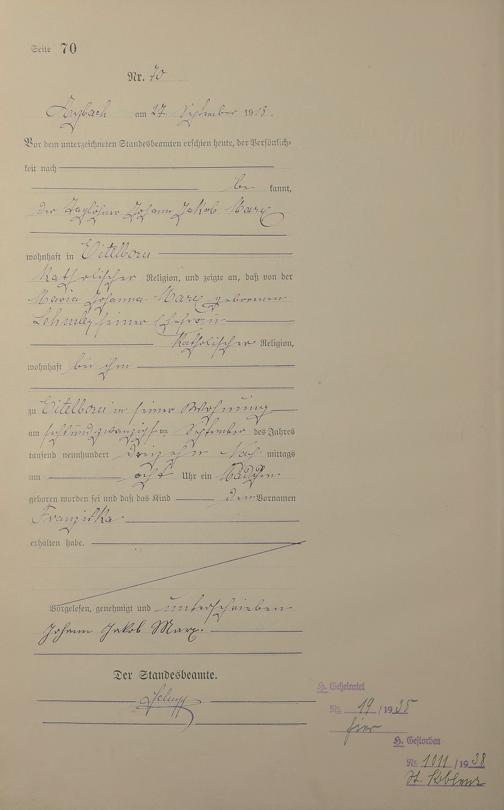 Seite 70
Nr. 70
Arzbach am 27 September 1913.
Vor dem unterzeichneten Standesbeamten erschien heute, der Persönlich-
keit nach
be kannt,
der Taglöhner Johann Jakob Marx
wohnhaft in Eitelborn
katholischer Religion, und zeigte an, daß von der
Maria Johanna Marx geborenen
seiner Ehefrau
katholischer Religion,
wohnhaft bei ihm
zu Eitelborn in seiner Wohnung
am sechsundzwanzigsten September des Jahres
tausend neunhundert dreizehn Nach mittags
um acht Uhr ein Mädchen
geboren worden sei und daß das Kind den Vornamen
Franziska
erhalten habe.
Vorgelesen, genehmigt und unterschrieben
Johann Jakob Marx.
Der Standesbeamte.
H. Geheiratet
Nr. 19 / 1935
hier
H. Gestorben
Nr. 1011 / 1938
St. Koblenz